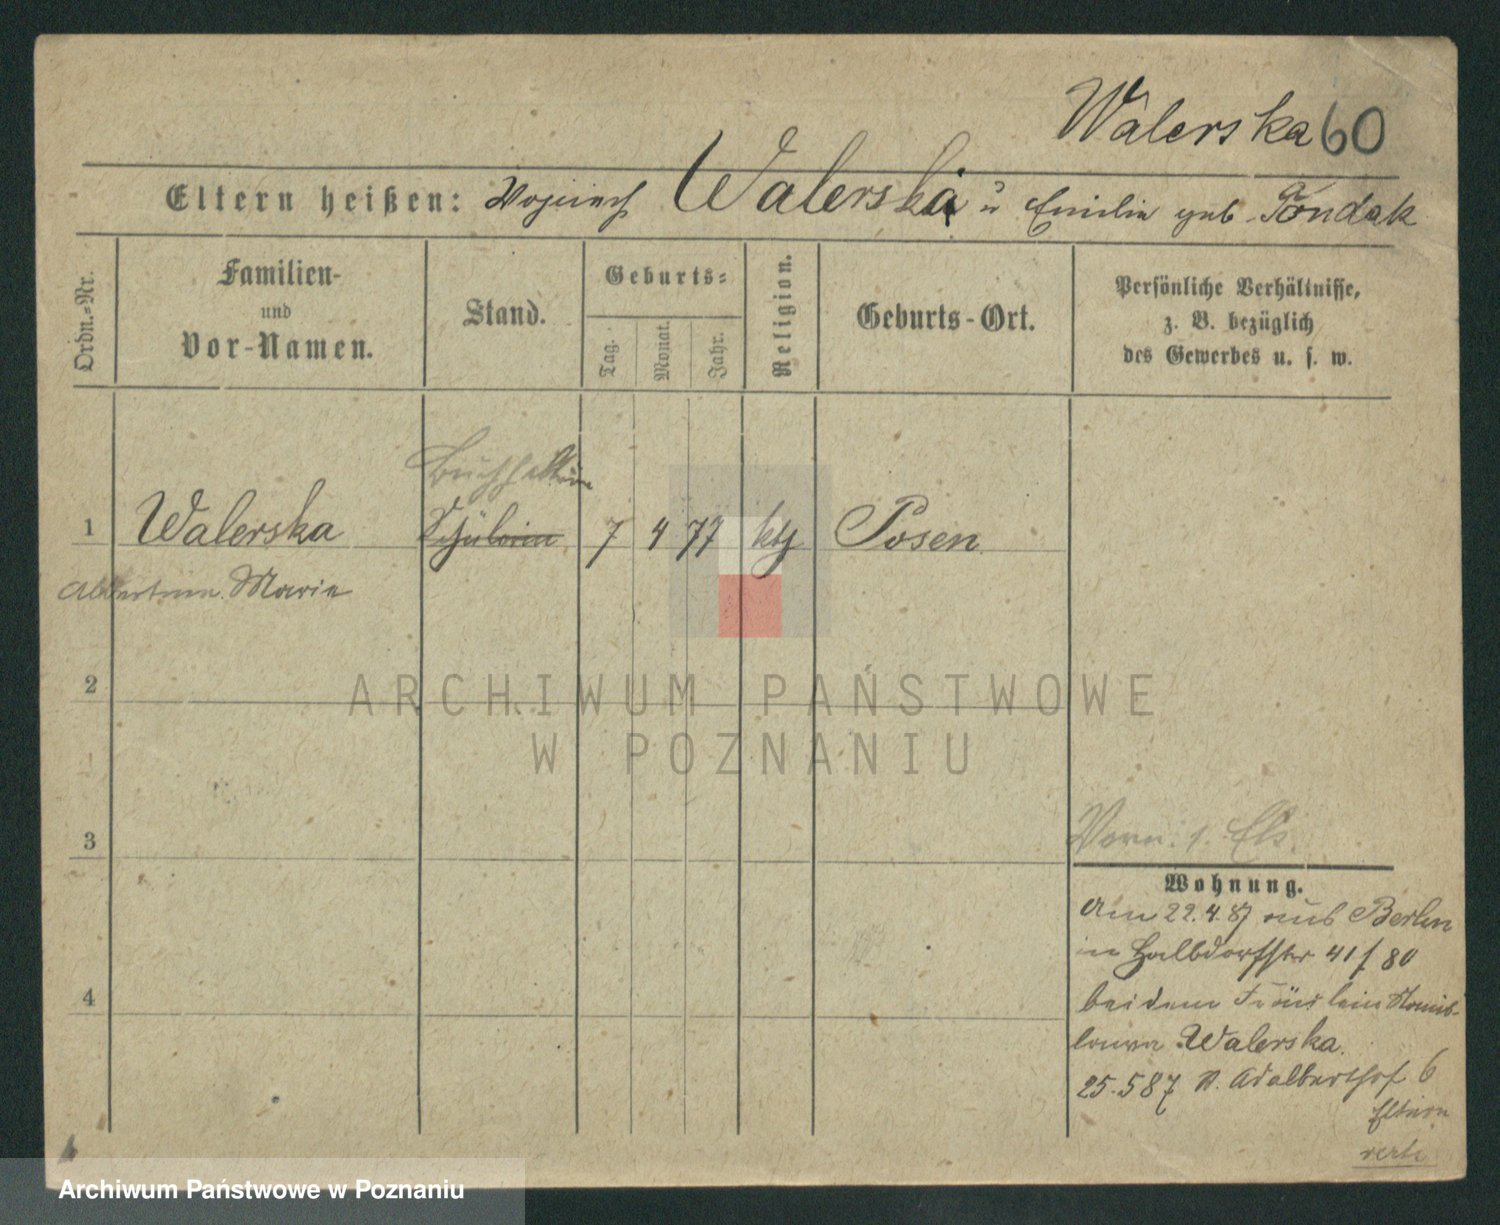 Walerska 60
Eltern heißen: Woyciech Walerska u Emilie geb. Tondak
Ordn.=Nr.
Familien-
und
Vor-Namen.
Stand.
Geburts=
Tag.
Monat.
Jahr.
Religion.
Geburts-Ort.
Persönliche Verhältnisse,
z. B. bezüglich
des Gewerbes u. s. w.
Buchhalterin
1 Walerska Schülerin 7 4 77 kth Posen
Albertine Marie
ARCHIWUM PAŃSTWOWE
W POZNANIU
2
3
4
Wohnung.
Am 22.4.87 aus Berlin
in Halbdorfstr 41 f 80
bei dem Fräulein Stanis-
lawa Walerska.
25.5 87 n. Adalberthof 6
Eltern
verte
Archiwum Państwowe w Poznaniu